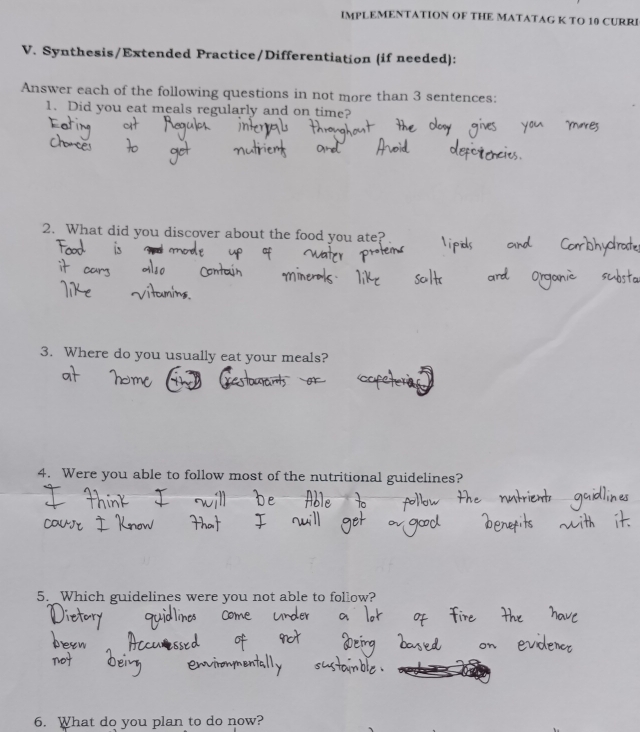 IMPLEMENTATION OF THE MATATAG K TO 10 CURRI
V. Synthesis/Extended Practice/Differentiation (if needed):
Answer each of the following questions in not more than 3 sentences:
1. Did you eat meals regularly and on time?
Eating at Regular intervals throughout the day gives you mores
chances to get nutrient and Avoid deficiencies.
2. What did you discover about the food you ate?
Food is made up of water proteins lipids and Carbohydrates
it cans also contain minerals like salts and organic substa
like vitamins.
3. Where do you usually eat your meals?
at home (in) (restaurants or cafeterias)
4. Were you able to follow most of the nutritional guidelines?
I think I will be Able to follow the nutrients guidlines
cause I Know that I will get a good benefits with it.
5. Which guidelines were you not able to follow?
Dietary guidlines come under a lot of fire the have
been Accussed of not being based on evidence
not being environmentally sustainble.
6. What do you plan to do now?